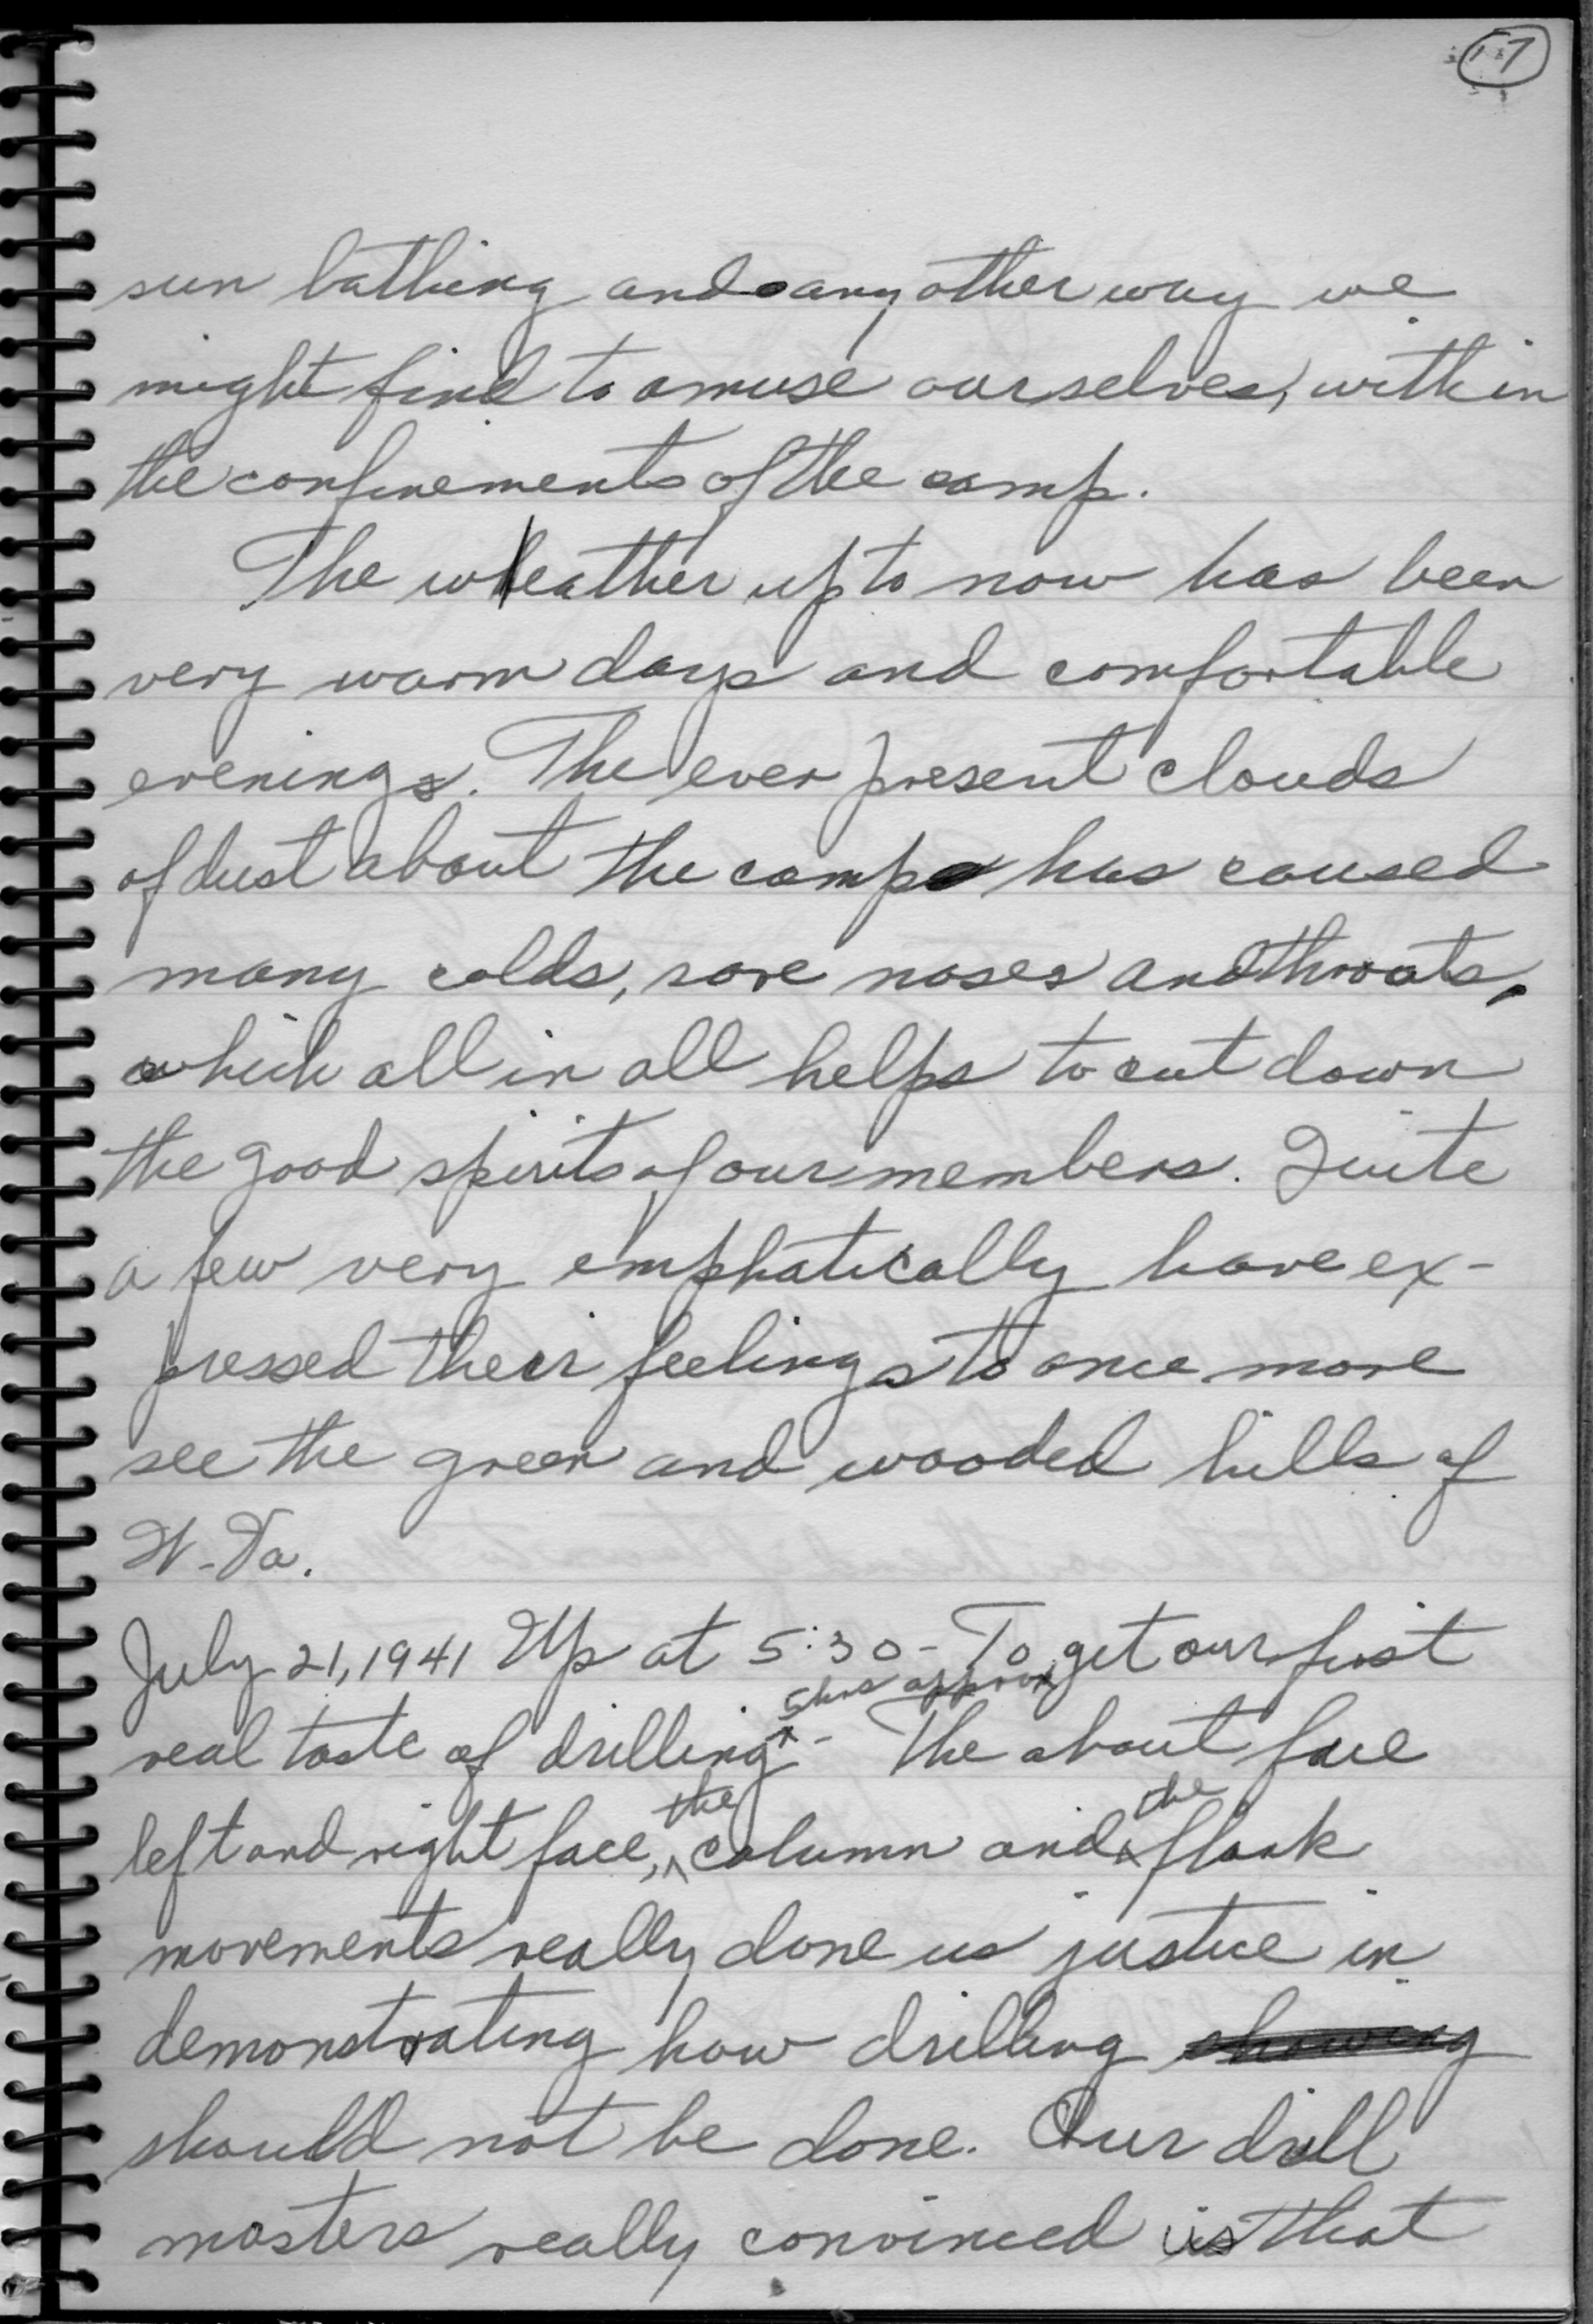 17
sun bathing and any other way we
might find to amuse ourselves, within
the confinements of the camp.
The wheather up to now has been
very warm days and comfortable
evenings. The ever present clouds
of dust about the camp has caused
many colds, sore noses and throats,
which all in all helps to cut down
the good spirits of our members. Quite
a few very emphatically have ex-
pressed their feelings to once more
see the green and wooded hills of
W-Va.
July 21, 1941 Up at 5:30 - To get our first
5 hrs approx
real taste of drilling ^ - The about face
the the
left and right face, ^ column and ^ flank
movements really done us justice in
demonstrating how drilling showing
should not be done. Our drill
masters really convinced us that